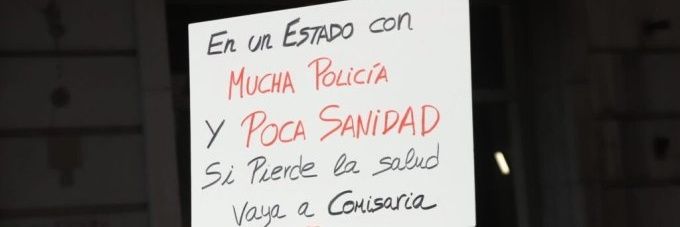 En un Estado con
Mucha Policía
Y Poca Sanidad
Si Pierde la salud
Vaya a Comisaria